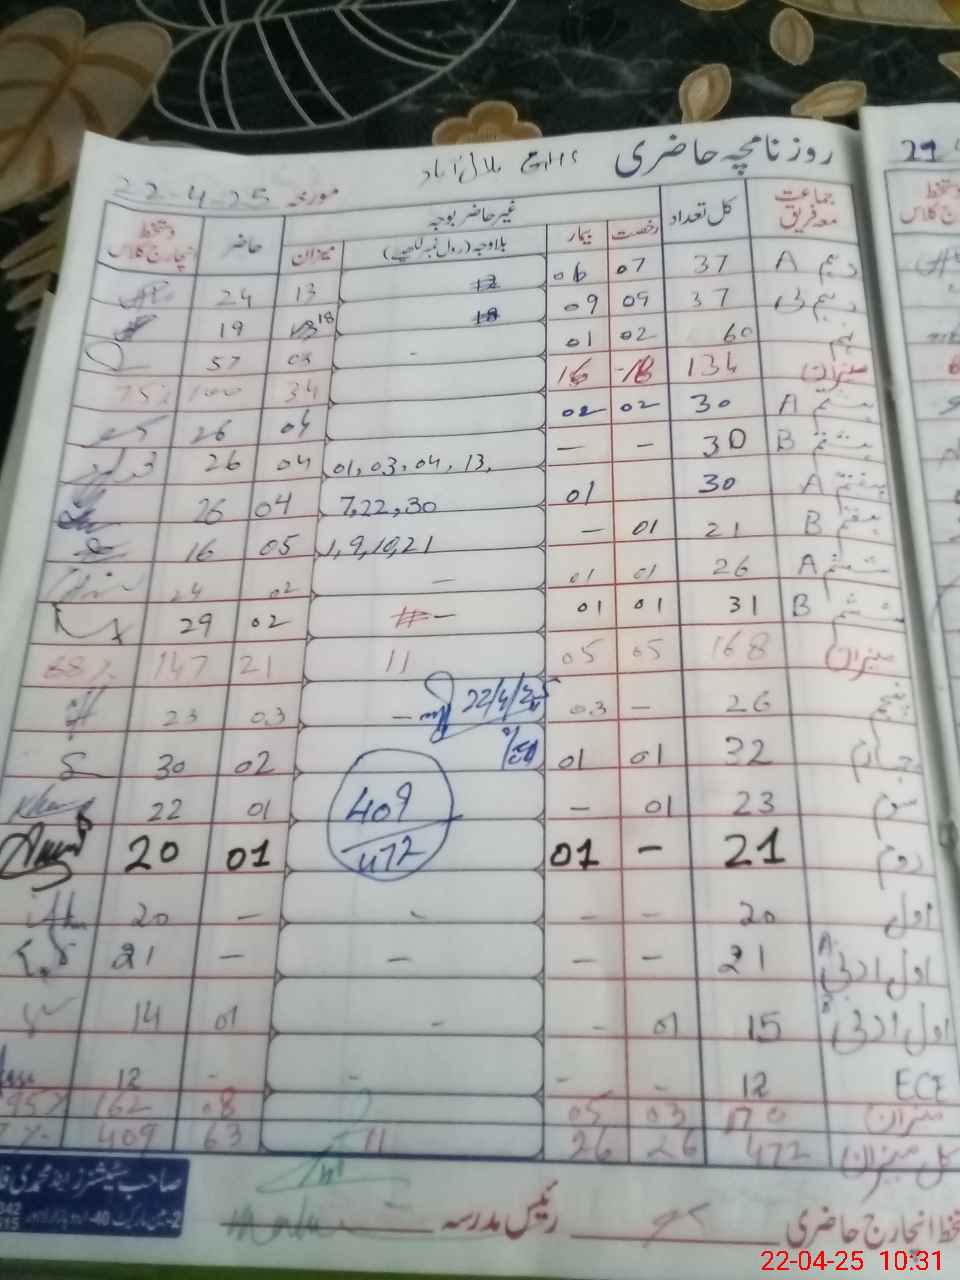 روزنامچہ حاضری GHS جلال آباد
مورخہ 22-4-25
جماعت معہ فریق کل تعداد غیر حاضر بوجہ حاضر دستخط انچارج کلاس
رخصت بیمار بلاوجہ (رول نمبر لکھیے) میزان
دہم A 37 07 06 13 24
دہم بی 37 09 09 18 18 19
نہم 60 02 01 - 03 57
میزان 134 18 16 34 100 75%
ہشتم A 30 02 02 04 26
ہشتم B 30 - - 01, 03, 04, 13, 04 26
ہفتم A 30 01 7,22,30 04 26
ہفتم B 21 01 - 1,9,10,21 05 16
ششم A 26 01 01 - 02 24
ششم B 31 01 01 - 02 29
میزان 168 05 05 11 21 147 88%
پنجم 26 - 03 - 22/4/25 03 23
چہارم 32 01 01 02 30
سوم 23 01 - 409 01 22
دوم 21 - 01 472 01 20
اول 20 - - - - 20
اول ادنیٰ A 21 - - - - 21
اول ادنیٰ 15 01 - - 01 14
ECE 12 - - - - 12
میزان 170 03 05 08 162 95%
کل میزان 472 26 26 11 63 409
دستخط انچارج حاضری رئیس مدرسہ
صاحب سٹیشنرز اینڈ محمدی
2-مین مارکیٹ 40-اردو بازار لاہور
342
515
29
22-04-25 10:31